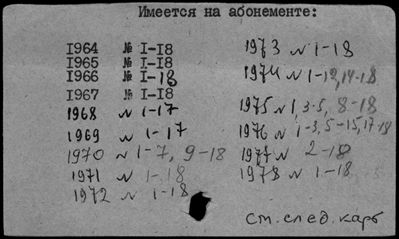 Имеется на абонементе:
1964 № 1-18
1965 № 1-18
1966 № 1-18
1967 № 1-18
1968 № 1-17
1969 № 1-17
1970 № 1-7, 9-18
1971 № 1-18
1972 № 1-18
1973 № 1-18
1974 № 1-12, 14-18
1975 № 1, 3-5, 8-18
1976 № 1-3, 5-15, 17-18
1977 № 2-18
1978 № 1-18
см. след. карт